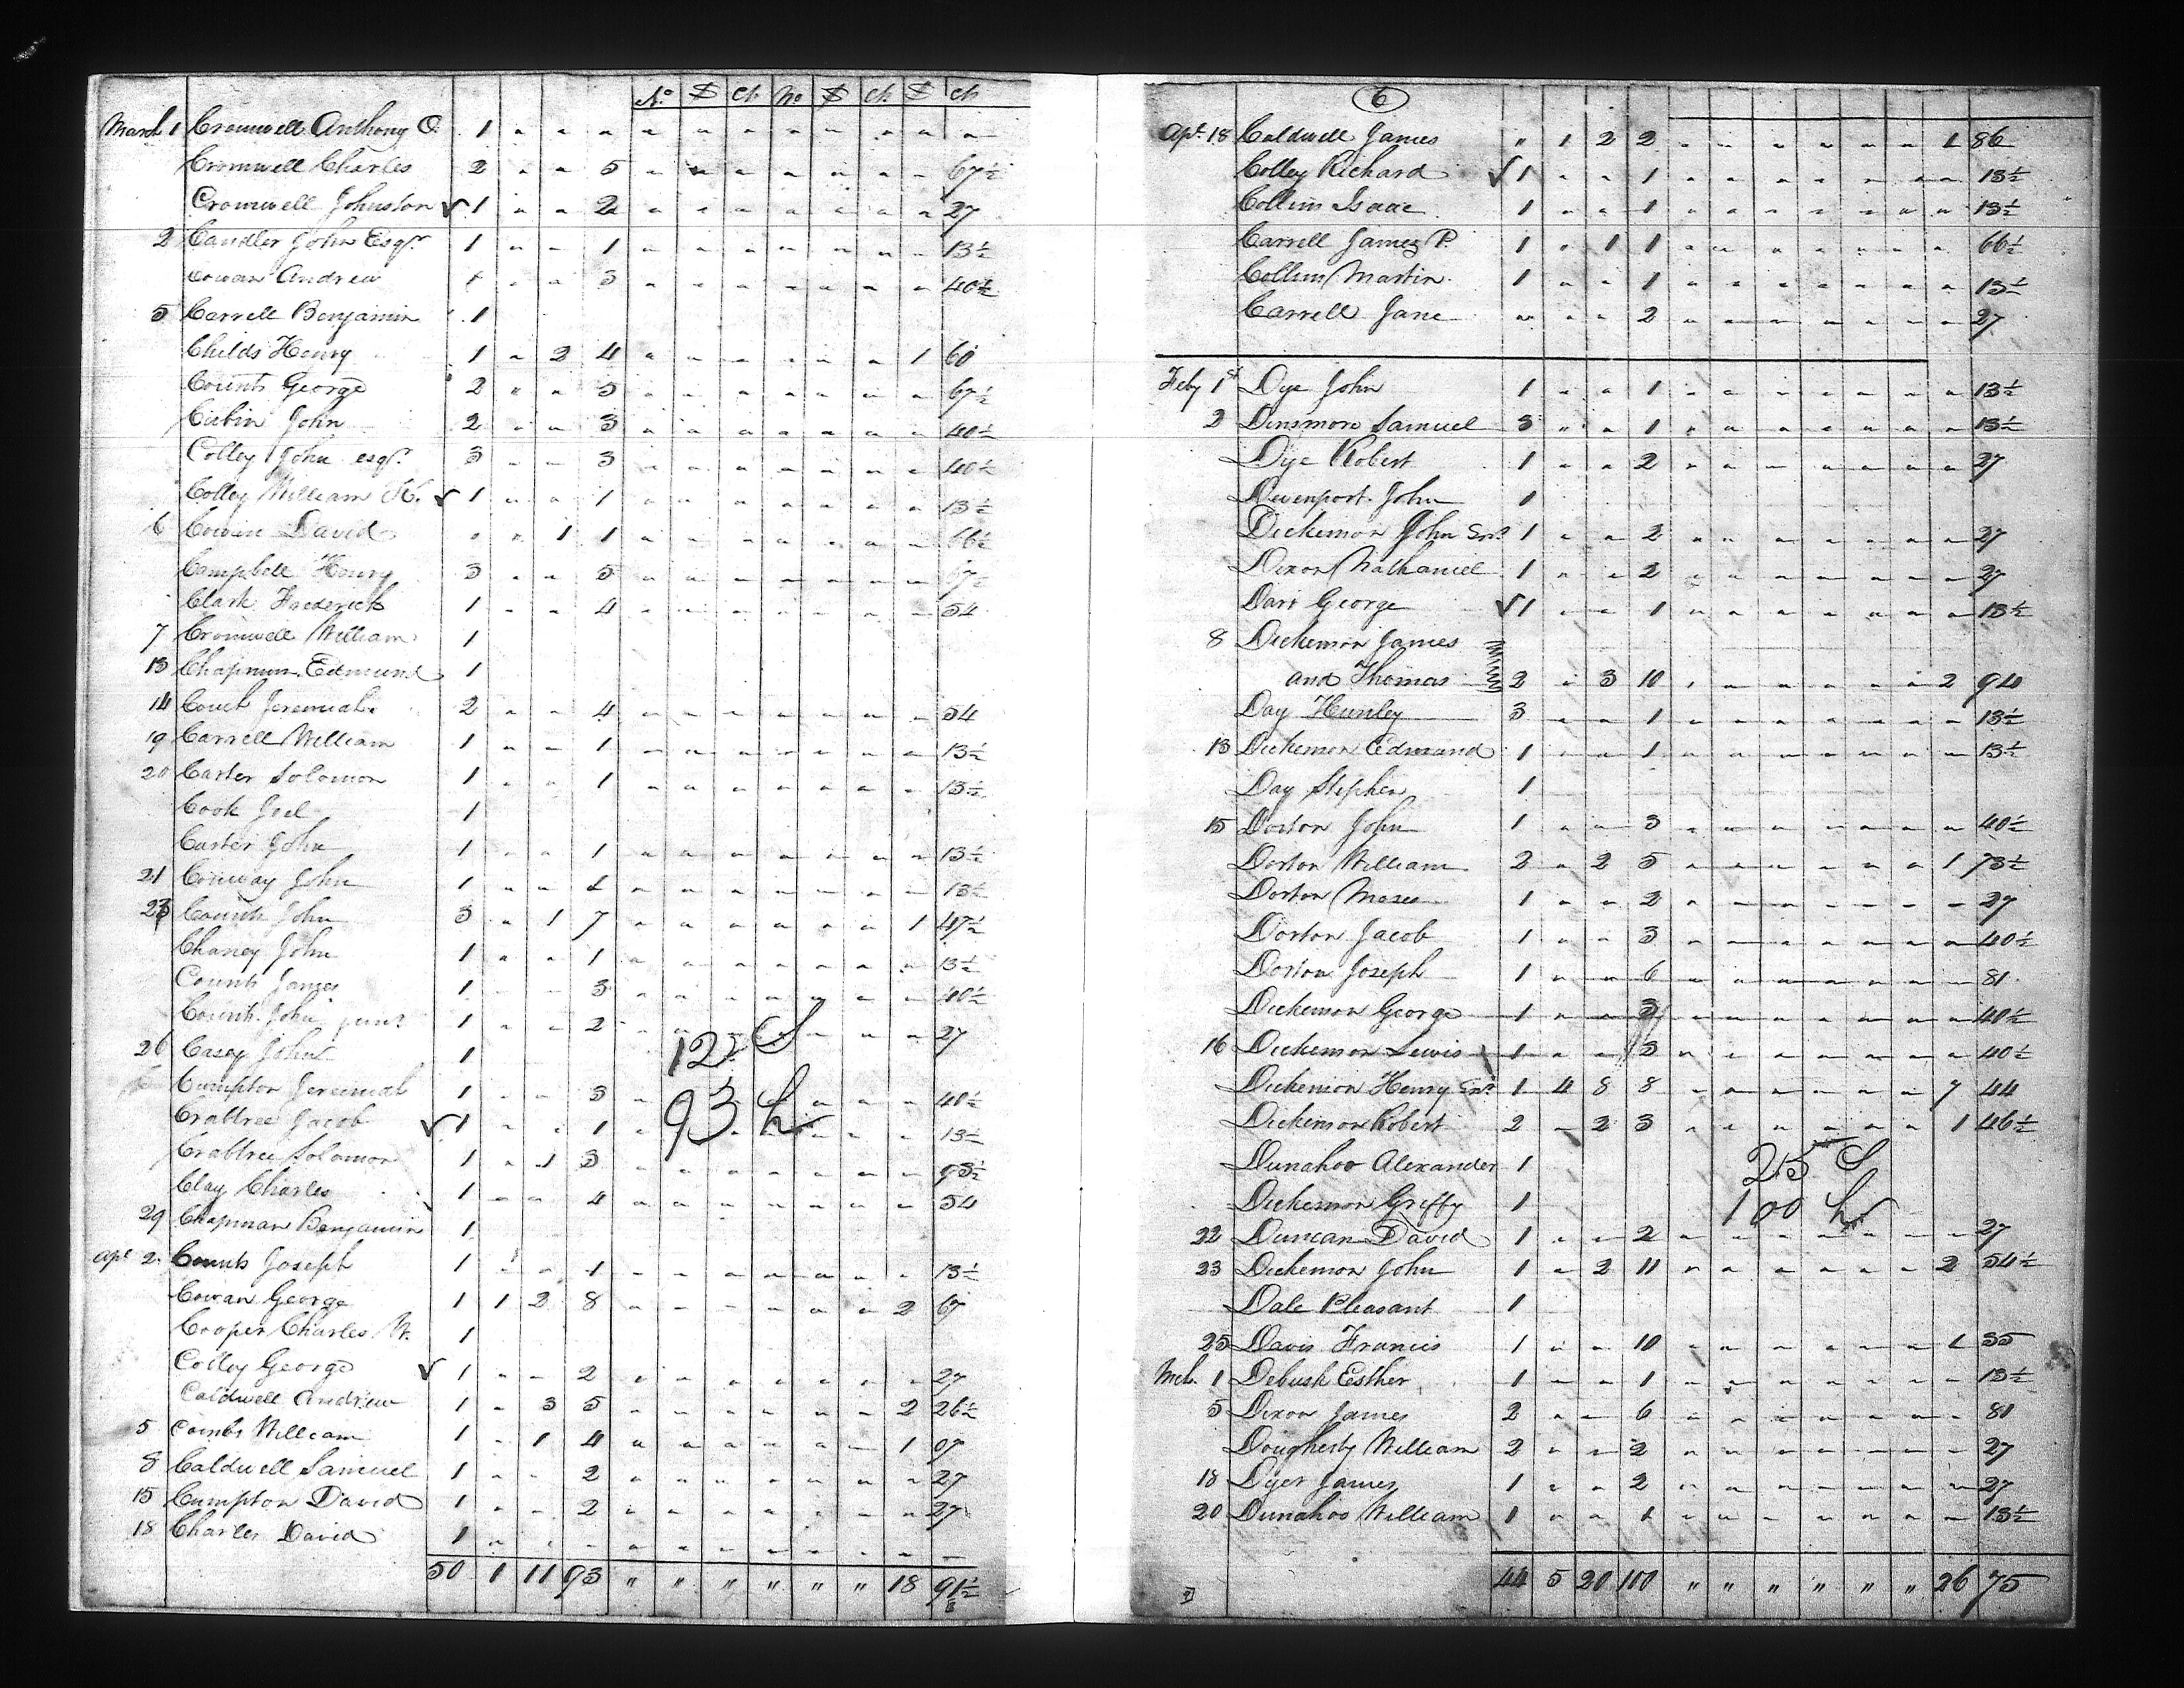 No $ Ct No $ Ct $ Ct
March 1 Cromwell Anthony O. 1 " " " " " " " " " " "
Cromwell Charles 2 " " 5 " " " " " " " 67½
Cromwell Johnston ✓ 1 " " 2 " " " " " " " 27
2 Candler John Esqr. 1 " " 1 " " " " " " " 13½
Cowan Andrew 1 " " 3 " " " " " " " 40½
5 Carrell Benjamin 1
Childs Henry 1 " 2 4 " " " " " " 1 60
Counts George 2 " " 5 " " " " " " " 67½
John 2 " " 3 " " " " " " " 40½
Colley John esqr. 3 " " 3 " " " " " " " 40½
Colley William ✓ 1 " " 1 " " " " " " " 13½
6 Cowan David " " 1 1 " " " " " " " 66½
Campbell Henry 3 " " 5 " " " " " " " 67½
Clark Frederick 1 " " 4 " " " " " " " 54
7 Cromwell William 1
13 Chapman Edmund 1
14 Couch Jeremiah 2 " " 4 " " " " " " " 54
19 Carrell William 1 " " 1 " " " " " " " 13½
20 Carter Solomon 1 " " 1 " " " " " " " 13½
Cook Joel 1
Carter John 1 " " 1 " " " " " " " 13½
21 Conway John 1 " " 1 " " " " " " " 13½
23 Counts John 3 " 1 7 " " " " " " 1 47½
Chaney John 1 " " 1 " " " " " " " 13½
Counts James 1 " " 3 " " " " " " " 40½
Counts John junr. 1 " " 2 " " " " " " " 27
26 Casey John 1 12 S
Cumpton Jeremiah 1 " " 3 " " " " " " " 40½
Crabtree Jacob ✓ 1 " " 1 93 h " " " 13½
Crabtree Solomon 1 " 1 3 " " " " " " " 93½
Clay Charles 1 " " 4 " " " " " " " 54
29 Chapman Benjamin 1
Apl 2 Counts Joseph 1 " " 1 " " " " " " " 13½
Cowan George 1 1 2 8 " " " " " " 2 67
Cooper Charles W. 1
Colley George ✓ 1 " " 2 " " " " " " " 27
Caldwell Andrew 1 " 3 5 " " " " " " 2 26½
5 Combs William 1 " 1 4 " " " " " " 1 07
8 Caldwell Samuel 1 " " 2 " " " " " " " 27
15 Cumpton David 1 " " 2 " " " " " " " 27
18 Charles David 1 " " " " " " " " " " "
50 1 11 93 " " " " " " 18 91½
6
Apl. 18 Caldwell James " 1 2 2 " " " " " " 1 86
Colley Richard ✓ 1 " " 1 " " " " " " " 13½
Collins Isaac 1 " " 1 " " " " " " " 13½
Carrell James P. 1 " 1 1 " " " " " " " 66½
Collins Martin 1 " " 1 " " " " " " " 13½
Carrell Jane " " " 2 " " " " " " " 27
Feby 1st Dye John 1 " " 1 " " " " " " " 13½
2 Dinsmore Samuel 3 " " 1 " " " " " " " 13½
Dye Robert 1 " " 2 " " " " " " " 27
Davenport John 1
Dickenson John Snr. 1 " " 2 " " " " " " " 27
Dixon Nathaniel 1 " " 2 " " " " " " " 27
George ✓ 1 " " 1 " " " " " " " 13½
8 Dickenson James
and Thomas 2 " 3 10 " " " " " " 2 94
Day Hunley 3 " " 1 " " " " " " " 13½
13 Dickenson Edmund 1 " " 1 " " " " " " " 13½
Day Stephen 1
15 Dorton John 1 " " 3 " " " " " " " 40½
Dorton William 2 " 2 5 " " " " " " 1 73½
Dorton Moses 1 " " 2 " " " " " " " 27
Dorton Jacob 1 " " 3 " " " " " " " 40½
Dorton Joseph 1 " " 6 " " " " " " " 81
Dickenson George 1 " " 3 " " " " " " " 40½
16 Dickenson Lewis 1 " " 3 " " " " " " " 40½
Dickenson Henry Snr. 1 4 8 8 " " " " " " 7 44
Dickenson Robert 2 " 2 3 " " " " " " 1 46½
Dunahoo Alexander 1 25 S
Dickenson Griffy 1 100 h
22 Duncan David 1 " " 2 " " " " " " " 27
23 Dickenson John 1 " 2 11 " " " " " " 2 54½
Dale Pleasant 1
25 Davis Francis 1 " " 10 " " " " " " 1 35
Mch. 1 Debusk Esther 1 " " 1 " " " " " " " 13½
5 Dixon James 2 " " 6 " " " " " " " 81
Dougherty William 2 " " 2 " " " " " " " 27
18 Dyer James 1 " " 2 " " " " " " " 27
20 Dunahoo William 1 " " 1 " " " " " " " 13½
44 5 20 100 " " " " " " 26 75